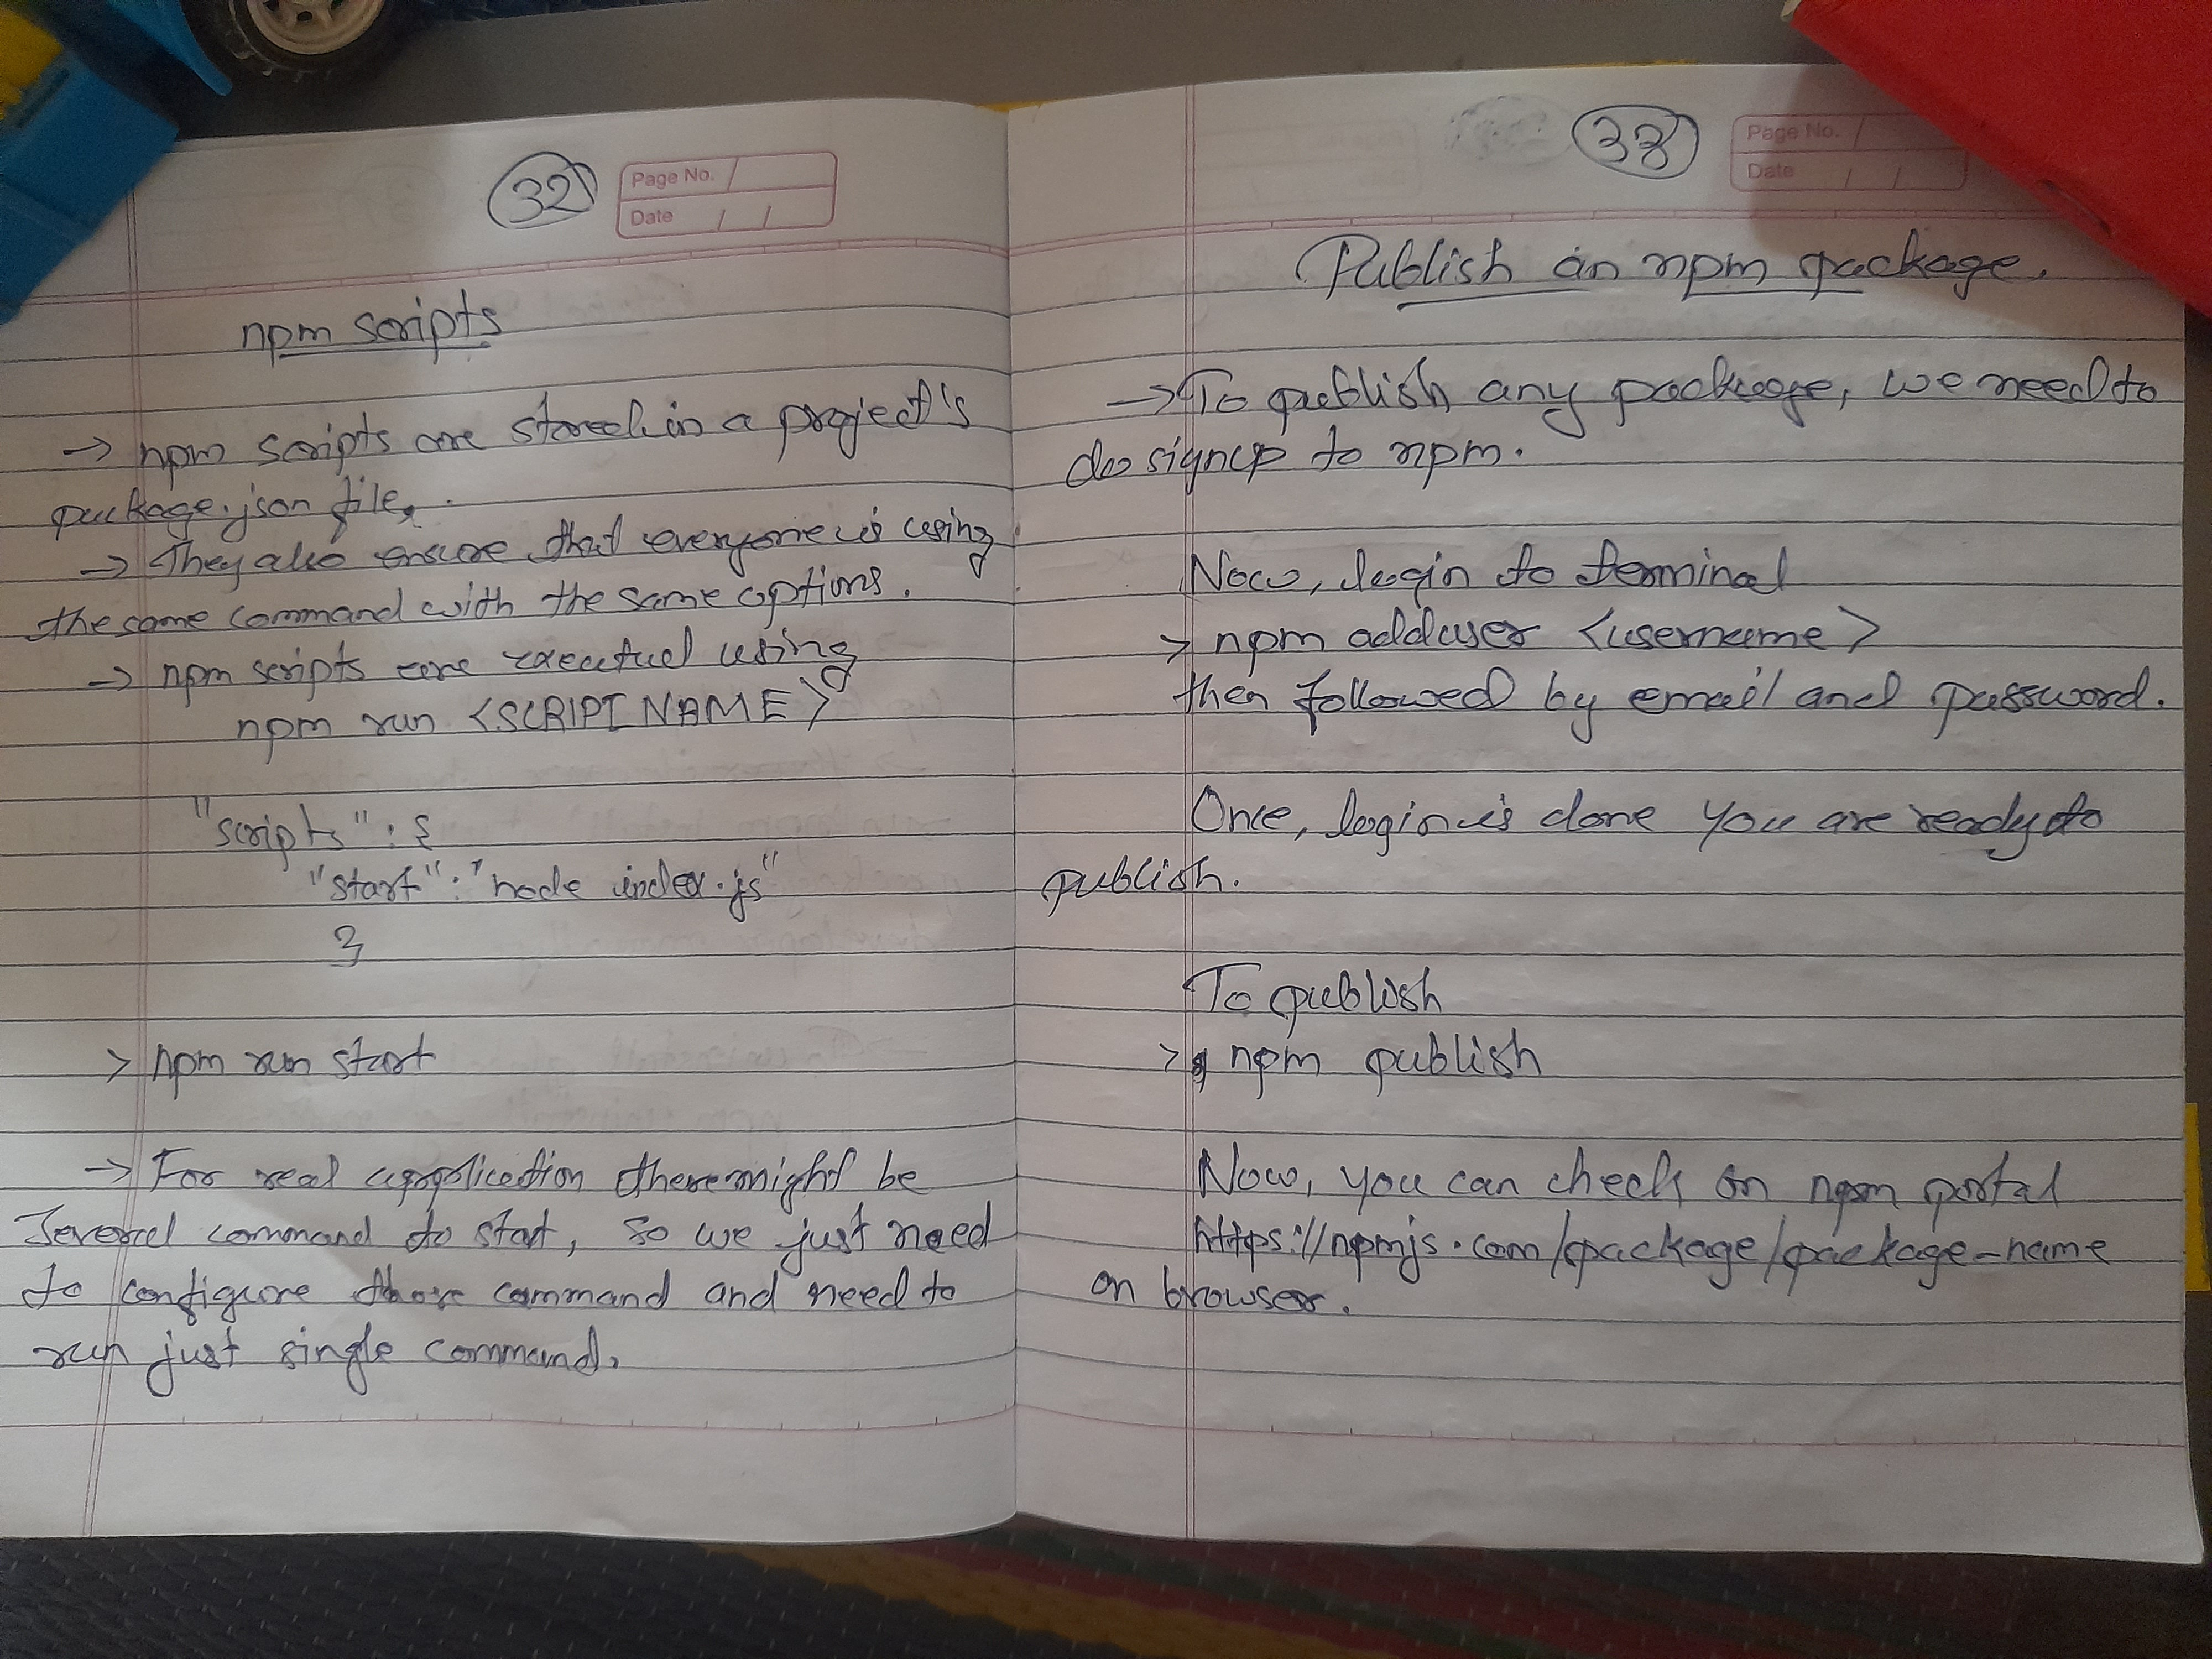 32
Page No.
Date / /
npm scripts
→ npm scripts are stored in a project's
package.json file.
→ They also ensure that everyone is using
the same command with the same options.
→ npm scripts are executed using
npm run <SCRIPT NAME>
"scripts" : {
"start" : "node index.js"
}
> npm run start
→ For real application there might be
Several command to start, so we just need
to configure those command and need to
run just single command.
33
Page No.
Date / /
Publish an npm package.
→ To publish any package, we need to
do signup to npm.
Now, login to terminal
> npm adduser <username>
then followed by email and password.
Once, login is done you are ready to
publish.
To publish
> npm publish
Now, you can check on npm portal
https://npmjs.com/package/package-name
on browser.